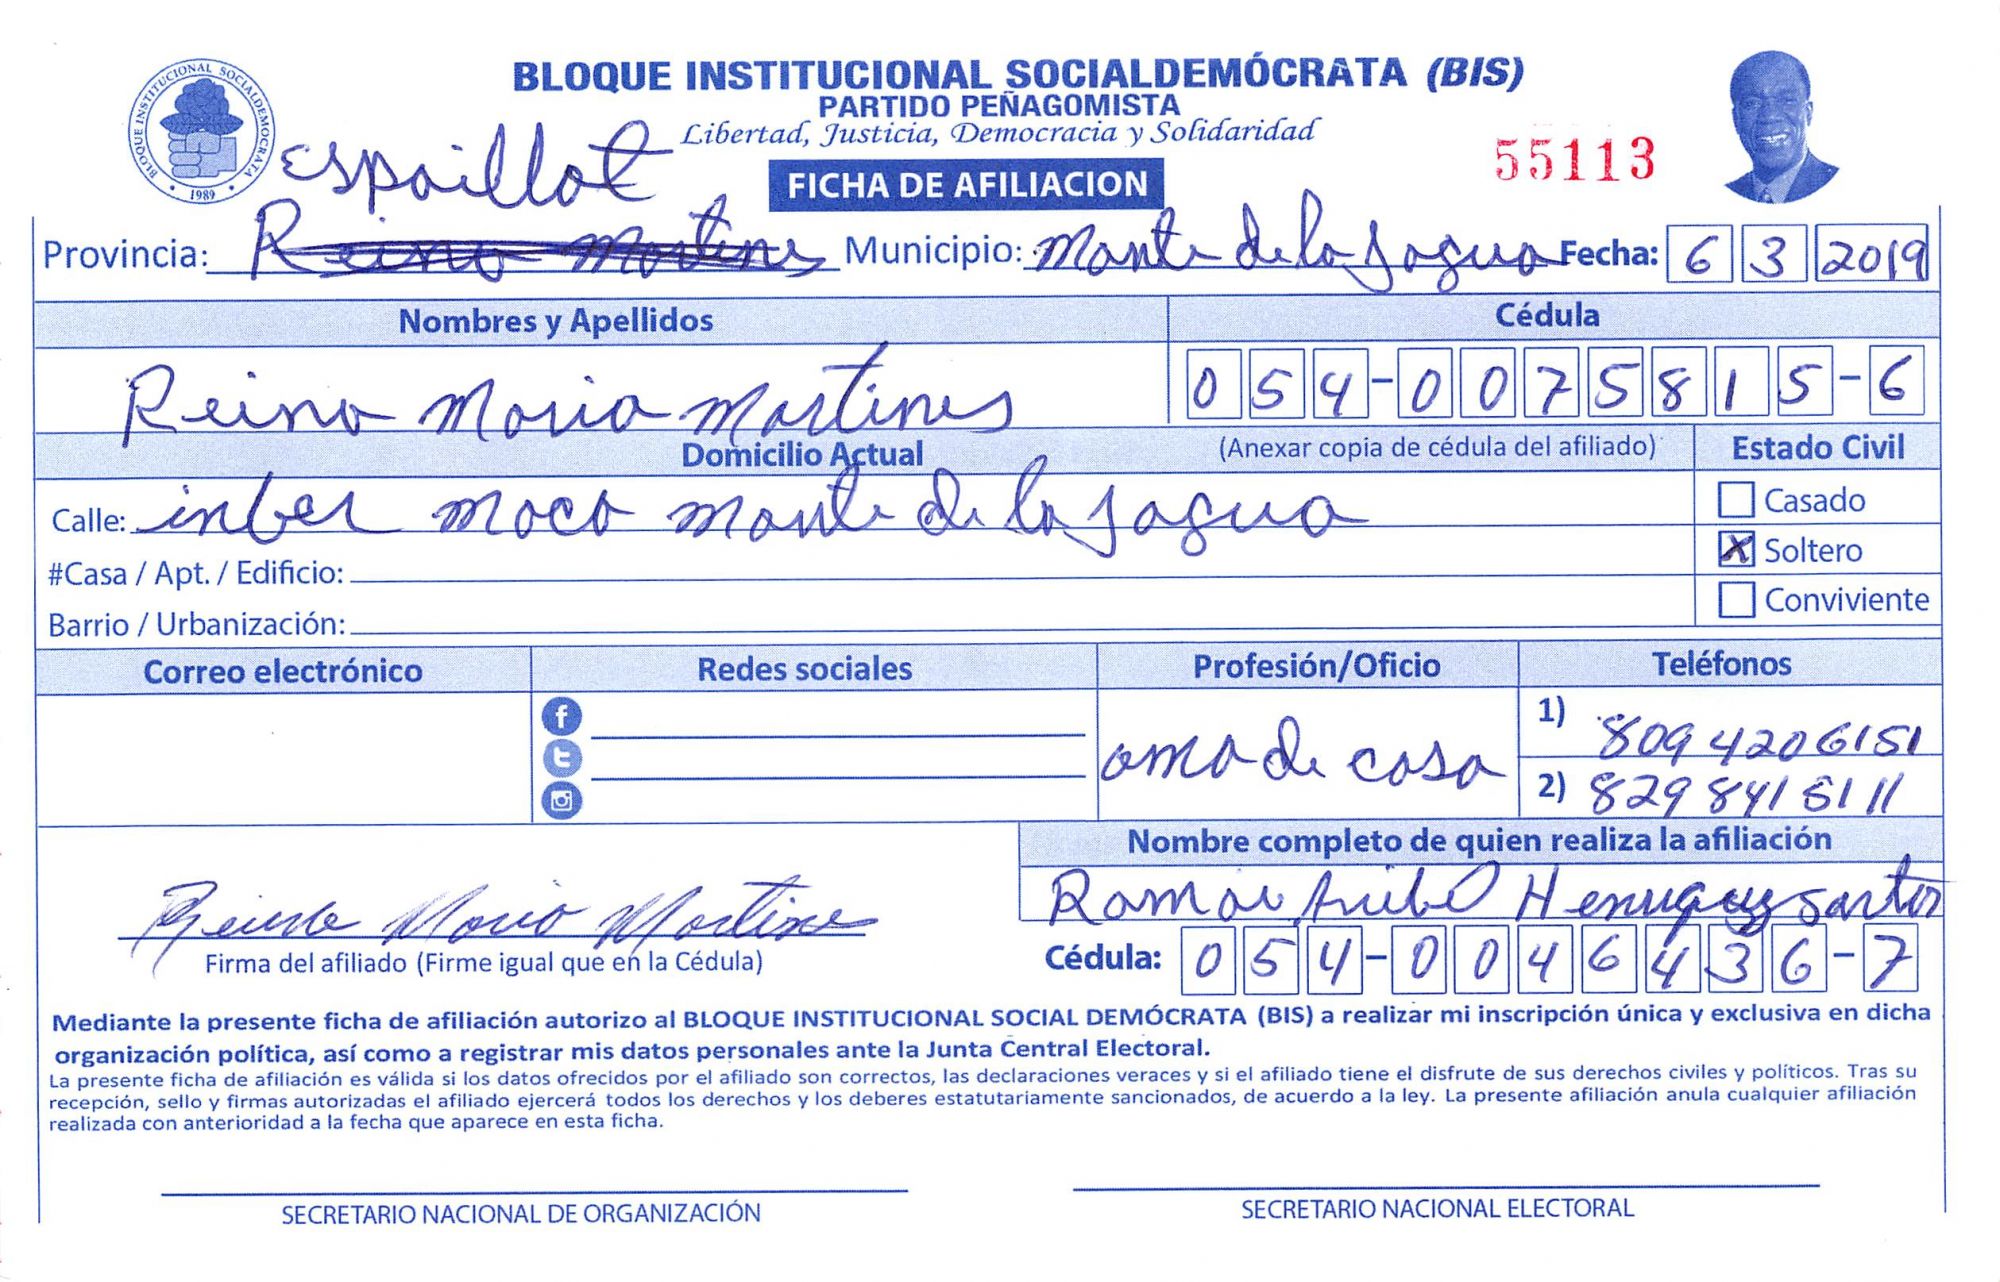 BLOQUE INSTITUCIONAL SOCIALDEMOCRATA
1989
BLOQUE INSTITUCIONAL SOCIALDEMÓCRATA (BIS)
PARTIDO PEÑAGOMISTA
Libertad, Justicia, Democracia y Solidaridad
FICHA DE AFILIACION
55113
Espaillat
Provincia: Reino Martines Municipio: Monte de la Jagua Fecha: 6 3 2019
Nombres y Apellidos Cédula
Reino Maria Martines 054-0075815-6
Domicilio Actual (Anexar copia de cédula del afiliado) Estado Civil
Calle: inber moca monte de la Jagua Casado
X Soltero
#Casa / Apt. / Edificio:
Conviviente
Barrio / Urbanización:
Correo electrónico Redes sociales Profesión/Oficio Teléfonos
ama de casa 1) 809 4206151
2) 829 841 5111
Nombre completo de quien realiza la afiliación
Henriquez Santos
Maria Martines
Firma del afiliado (Firme igual que en la Cédula) Cédula: 054-0046436-7
Mediante la presente ficha de afiliación autorizo al BLOQUE INSTITUCIONAL SOCIAL DEMÓCRATA (BIS) a realizar mi inscripción única y exclusiva en dicha
organización política, así como a registrar mis datos personales ante la Junta Central Electoral.
La presente ficha de afiliación es válida si los datos ofrecidos por el afiliado son correctos, las declaraciones veraces y si el afiliado tiene el disfrute de sus derechos civiles y políticos. Tras su
recepción, sello y firmas autorizadas el afiliado ejercerá todos los derechos y los deberes estatutariamente sancionados, de acuerdo a la ley. La presente afiliación anula cualquier afiliación
realizada con anterioridad a la fecha que aparece en esta ficha.
SECRETARIO NACIONAL DE ORGANIZACIÓN SECRETARIO NACIONAL ELECTORAL